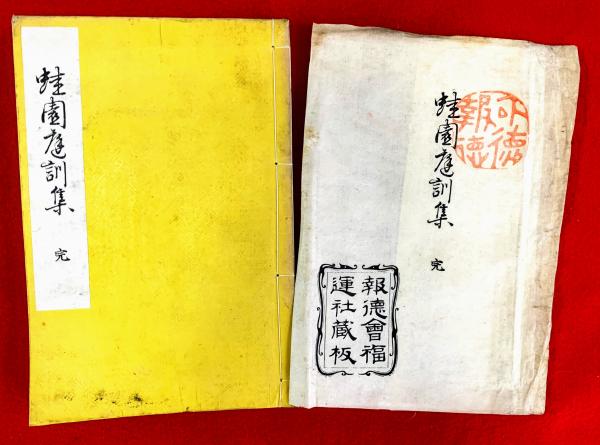 蛙園庭訓集 完
蛙園庭訓集 完
以徳
報徳
報德會福
運社藏板